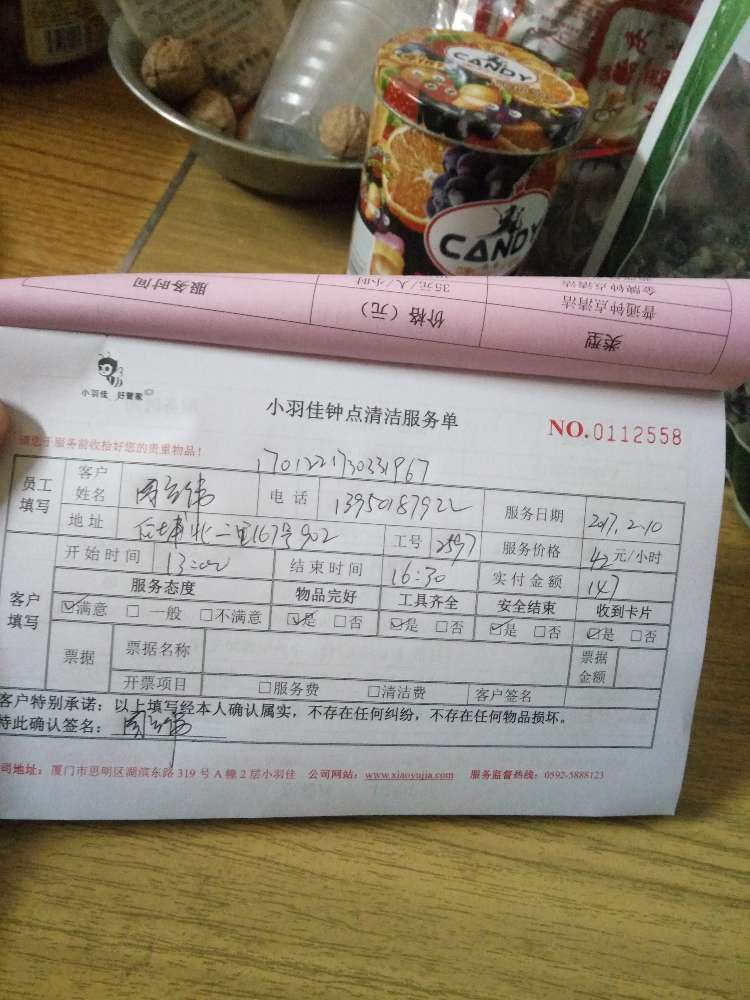 CANDY
CANDY
服务时间
35元/人/小时
金牌钟点清洁
价格（元）
普通钟点清洁
类型
小羽佳 好管家
小羽佳钟点清洁服务单
NO.0112558
请您于服务前收拾好您的贵重物品！
1701221730331967
员工填写
客户姓名
电话 13950187922
服务日期 2017.2.10
地址 后埔北二里167号902
工号 2597
服务价格 42元/小时
客户填写
开始时间 13:00
结束时间 16:30
实付金额 147
服务态度 物品完好 工具齐全 安全结束 收到卡片
☑满意 □一般 □不满意 ☑是 □否 ☑是 □否 ☑是 □否 ☑是 □否
票据
票据名称
票据金额
开票项目 □服务费 □清洁费 客户签名
客户特别承诺：以上填写经本人确认属实，不存在任何纠纷，不存在任何物品损坏。
特此确认签名：
司地址：厦门市思明区湖滨东路319号A幢2层小羽佳 公司网站：www.xiaoyujia.com 服务监督热线：0592-5888123